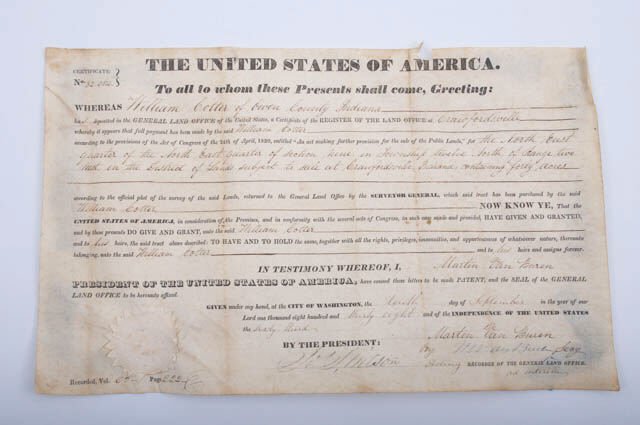 THE UNITED STATES OF AMERICA.
CERTIFICATE
No.
To all to whom these Presents shall come, Greeting:
WHEREAS William Cotter of Owen County Indiana
deposited in the GENERAL LAND OFFICE of the United States, a Certificate of the REGISTER OF THE LAND OFFICE at Crawfordsville
whereby it appears that full payment has been made by the said William Cotter
according to the provisions of the Act of Congress of the 24th of April, 1820, entitled "An act making further provision for the sale of the Public Lands," for the North East
quarter of the North East quarter of Section nine in Township twelve North of Range five
West in the District of Lands subject to sale at Crawfordsville Indiana containing forty acres
according to the official plat of the survey of the said Lands, returned to the General Land Office by the SURVEYOR GENERAL, which said tract has been purchased by the said
William Cotter NOW KNOW YE, That the
UNITED STATES OF AMERICA, in consideration of the Premises, and in conformity with the several acts of Congress, in such case made and provided, HAVE GIVEN AND GRANTED,
and by these presents DO GIVE AND GRANT, unto the said William Cotter
and to his heirs, the said tract above described: TO HAVE AND TO HOLD the same, together with all the rights, privileges, immunities, and appurtenances of whatsoever nature, thereunto
belonging, unto the said William Cotter and to his heirs and assigns forever.
IN TESTIMONY WHEREOF, I, Martin Van Buren
PRESIDENT OF THE UNITED STATES OF AMERICA, have caused these Letters to be made PATENT, and the SEAL of the GENERAL
LAND OFFICE to be hereunto affixed.
GIVEN under my hand, at the CITY OF WASHINGTON, the tenth day of September in the year of our
Lord one thousand eight hundred and thirty eight and of the INDEPENDENCE OF THE UNITED STATES
the sixty third
BY THE PRESIDENT: Martin Van Buren
By
Acting RECORDER OF THE GENERAL LAND OFFICE.
ad interim
Recorded, Vol. Page 222